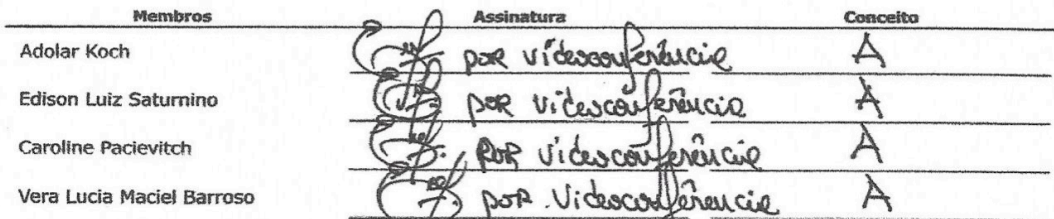 Membros Assinatura Conceito
Adolar Koch por videoconferência A
Edison Luiz Saturnino por videoconferência A
Caroline Pacievitch por videoconferência A
Vera Lucia Maciel Barroso por videoconferência A